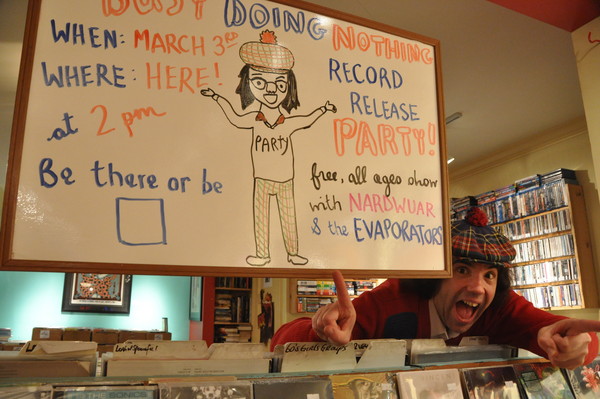 BUSY DOING NOTHING
WHEN: MARCH 3RD
WHERE: HERE!
at 2 pm
Be there or be
RECORD
RELEASE
PARTY!
free, all ages show
with NARDWUAR
& the EVAPORATORS
PARTY
60s GIRLS GROUPS